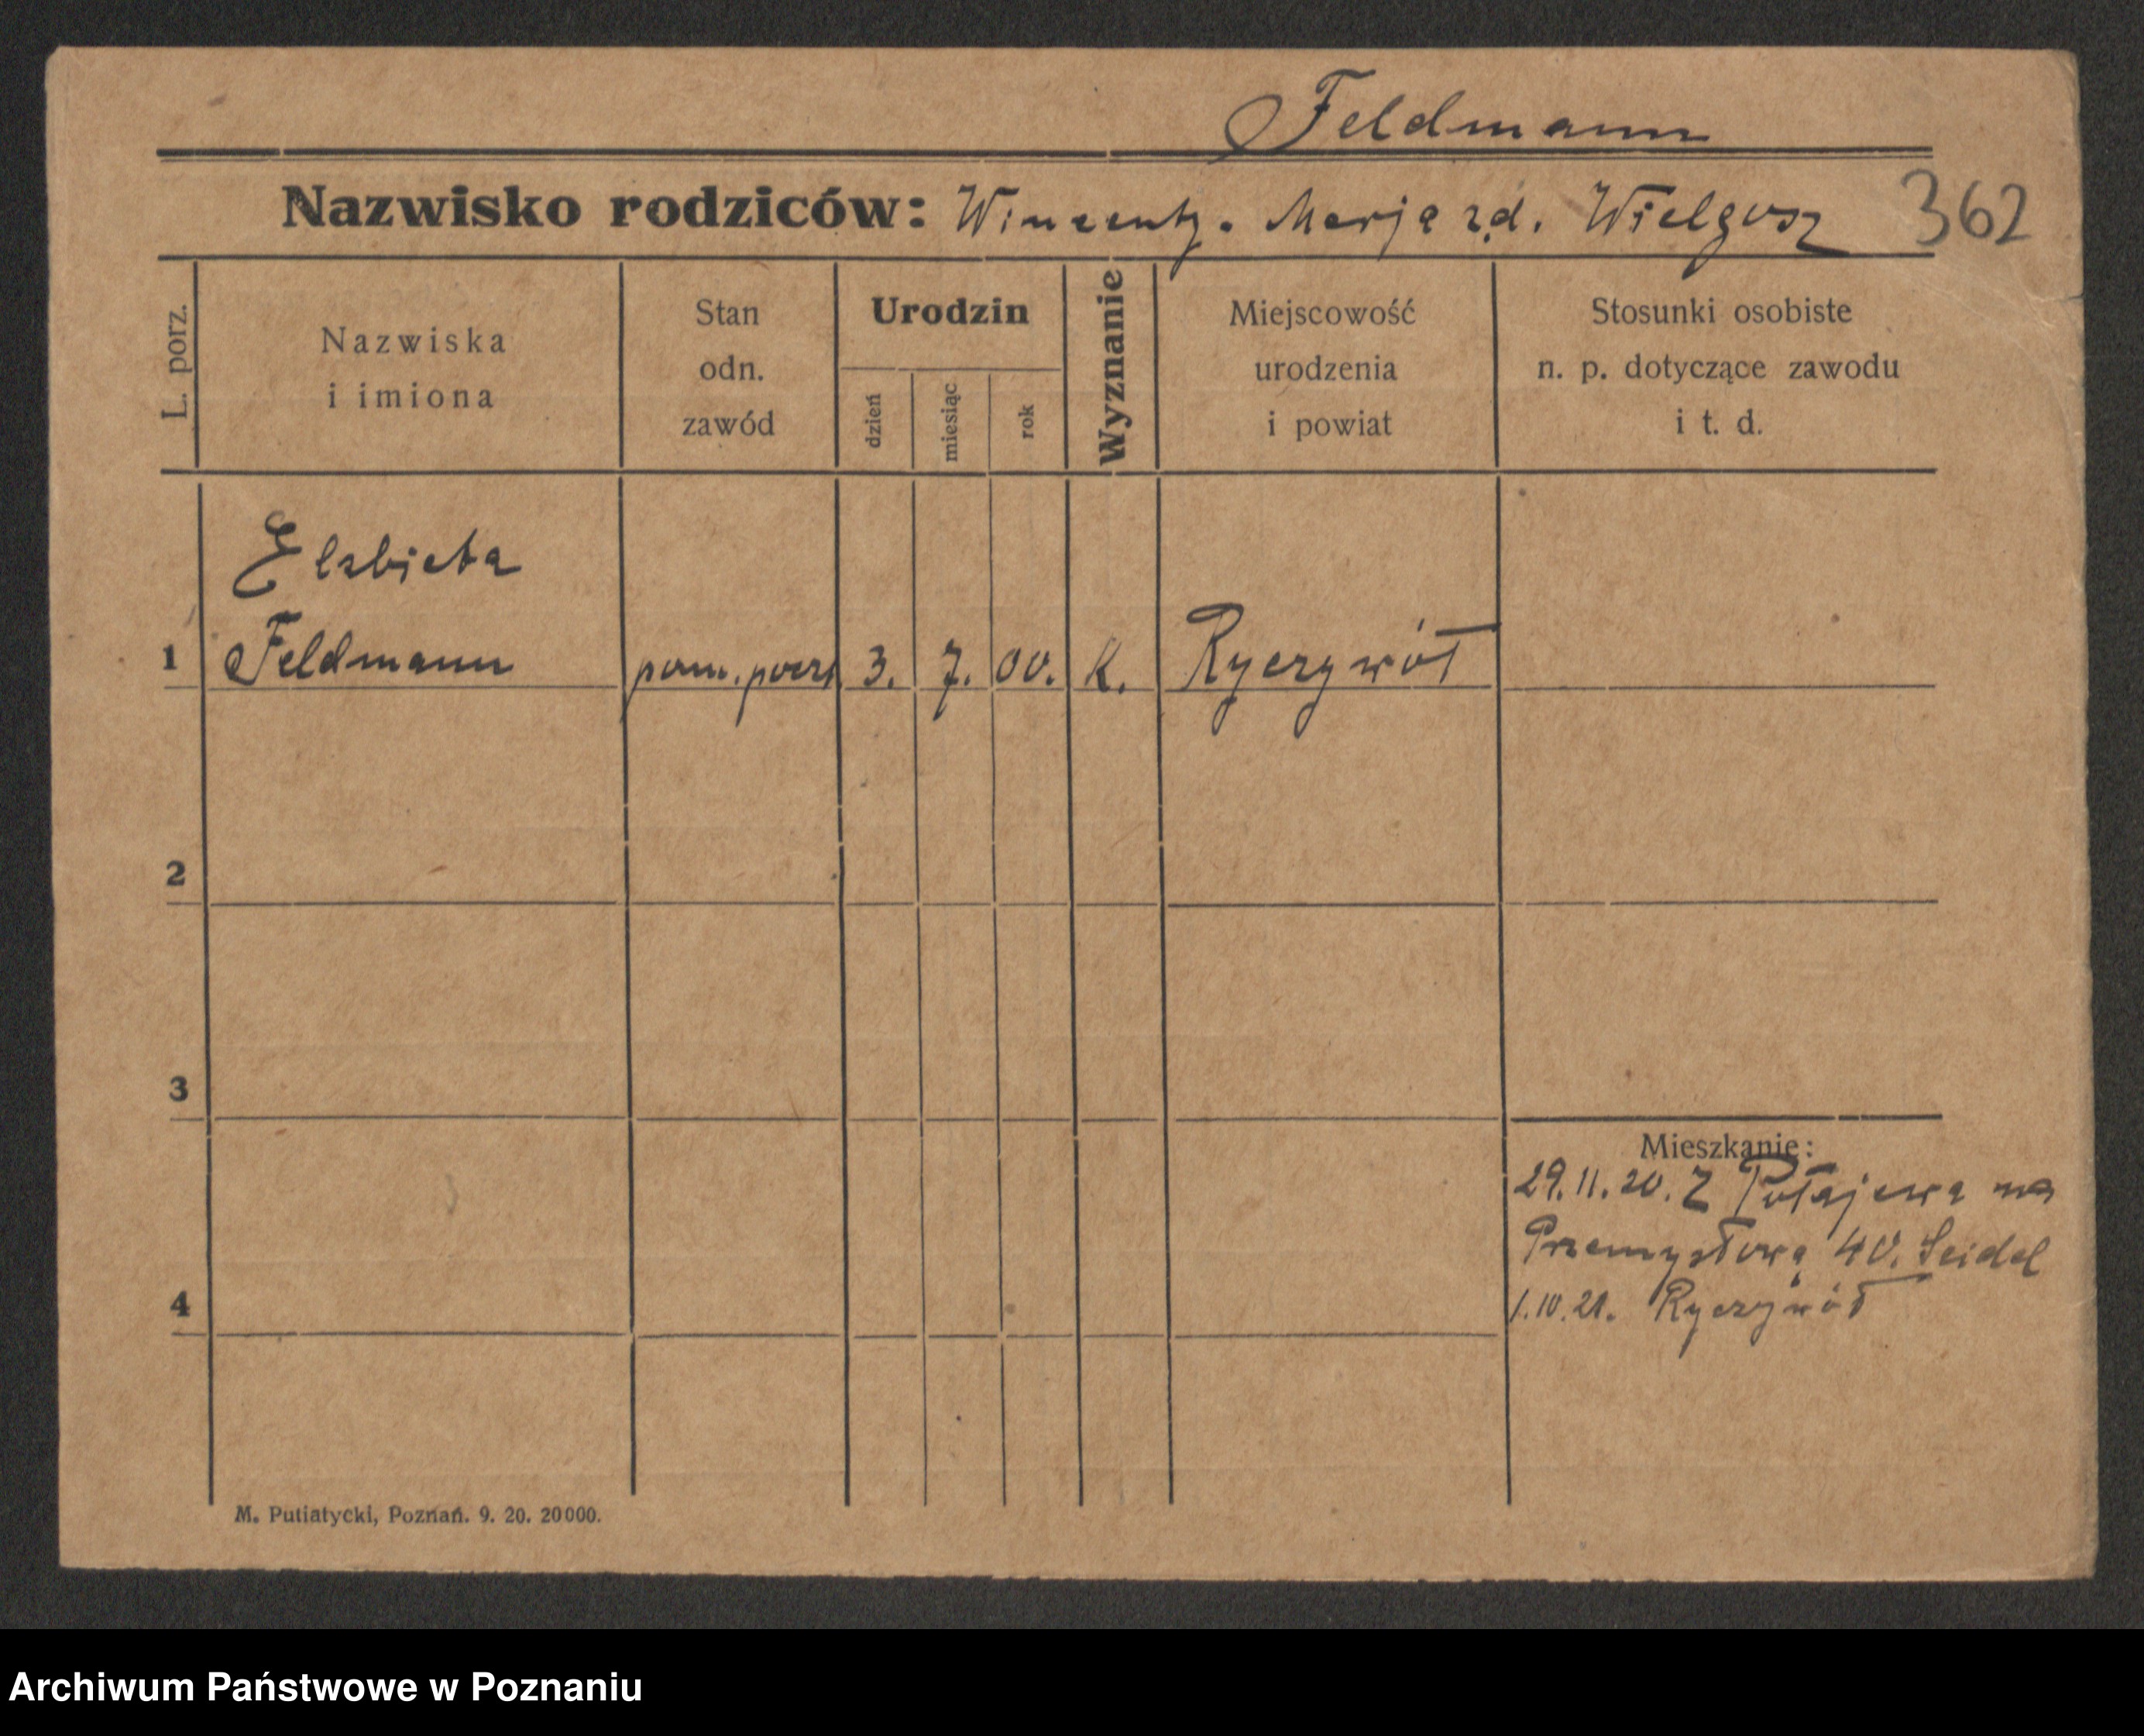 Feldmann
Nazwisko rodziców: Wincenty. Marja zd. Wielgosz 362
L. porz.
Nazwiska
i imiona
Stan
odn.
zawód
Urodzin
dzień
miesiąc
rok
Wyznanie
Miejscowość
urodzenia
i powiat
Stosunki osobiste
n. p. dotyczące zawodu
i t. d.
Elzbieta
1 Feldmann pom. poczt 3. 7. 00. K. Ryczywół
2
3
Mieszkanie:
29.11.20. Z Połajewa na
Przemysłową 40. Seidel
4 1.10.21. Ryczywół
M. Putiatycki, Poznań. 9. 20. 20000.
Archiwum Państwowe w Poznaniu